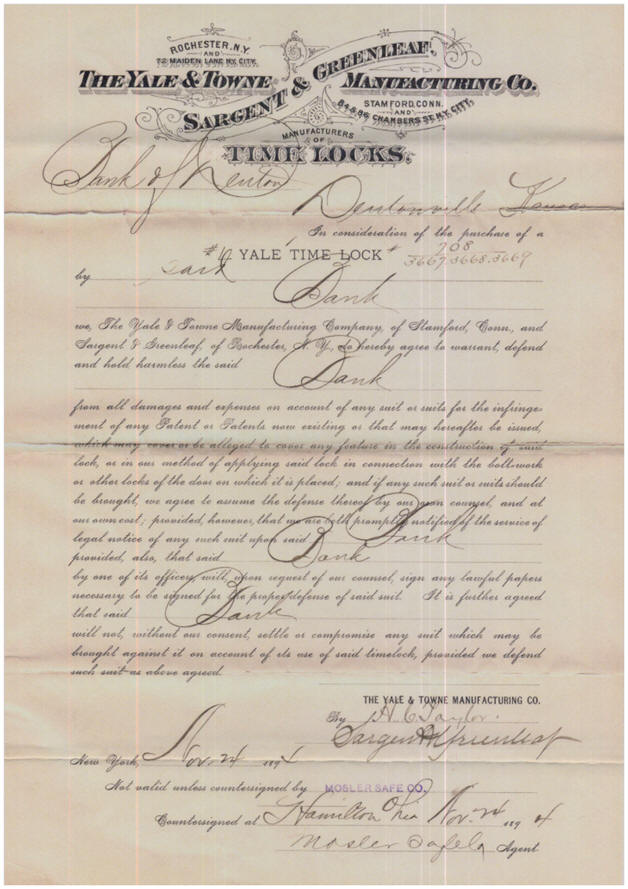 ROCHESTER, N.Y.
AND
72 MAIDEN LANE N.Y. CITY.
THE YALE & TOWNE MANUFACTURING CO.
SARGENT & GREENLEAF.
STAMFORD, CONN.
AND
84 & 86 CHAMBERS ST. N.Y. CITY.
MANUFACTURERS
OF
TIME LOCKS.
Bank of Denton
Dentonville Kansas
In consideration of the purchase of a
YALE TIME LOCK # 708
3667.3668.3669
by said Bank
we, The Yale & Towne Manufacturing Company, of Stamford, Conn., and
Sargent & Greenleaf, of Rochester, N. Y., do hereby agree to warrant, defend
and hold harmless the said Bank
from all damages and expenses on account of any suit or suits for the infringe-
ment of any Patent or Patents now existing or that may hereafter be issued,
which may cover or be alleged to cover any feature in the construction of said
lock, or in our method of applying said lock in connection with the boltwork
or other locks of the door on which it is placed; and if any such suit or suits should
be brought, we agree to assume the defense thereof by our own counsel, and at
our own cost; provided, however, that we are both promptly notified of the service of
legal notice of any such suit upon said Bank
provided, also, that said Bank
by one of its officers, will, upon request of our counsel, sign any lawful papers
necessary to be signed for the proper defense of said suit. It is further agreed
that said Bank
will not, without our consent, settle or compromise any suit which may be
brought against it on account of its use of said timelock, provided we defend
such suit as above agreed.
THE YALE & TOWNE MANUFACTURING CO.
By H C Taylor.
Sargent & Greenleaf
New York, Nov. 24 1894
Not valid unless countersigned by MOSLER SAFE CO.
Countersigned at Hamilton Nov. 24 1894
Mosler Safe Co Agent